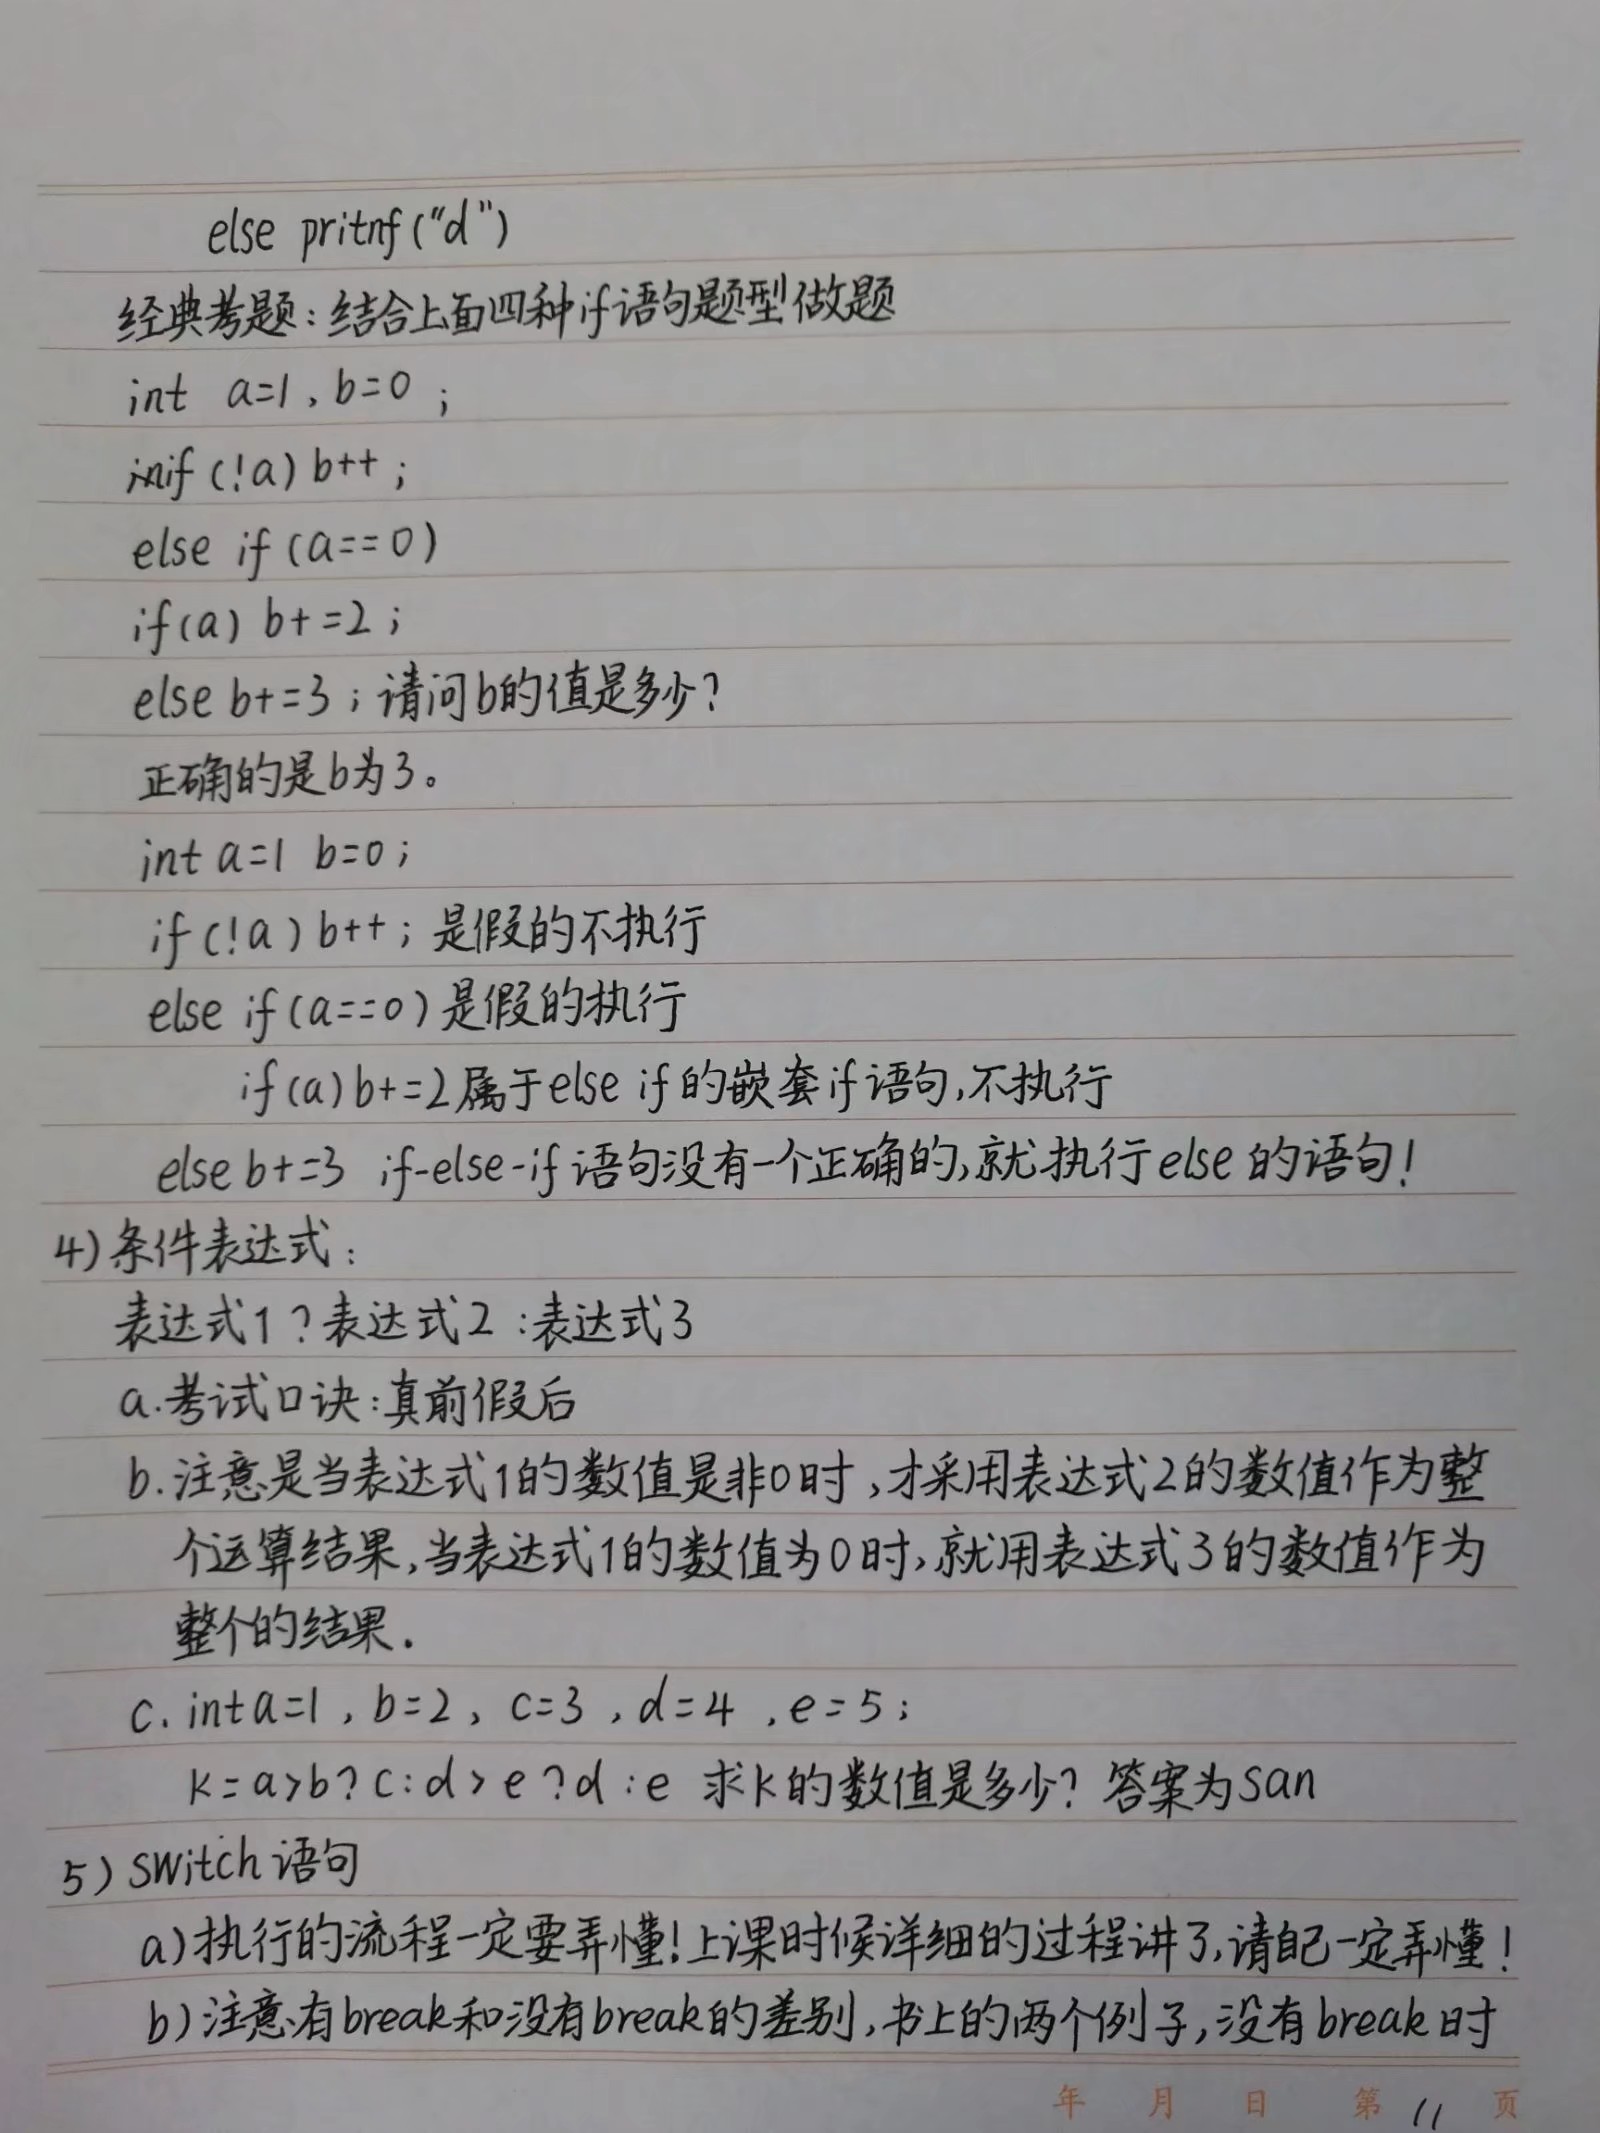 else pritnf("d")
经典考题：结合上面四种if语句题型做题
int a=1, b=0 ;
if (!a) b++ ;
else if (a==0)
if(a) b+=2 ;
else b+=3 ; 请问b的值是多少？
正确的是b为3。
int a=1 b=0 ;
if (!a) b++ ; 是假的不执行
else if (a==0) 是假的执行
if (a) b+=2 属于else if的嵌套if语句,不执行
else b+=3 if-else-if语句没有一个正确的,就执行else的语句!
4) 条件表达式：
表达式1 ? 表达式2 : 表达式3
a.考试口诀：真前假后
b.注意是当表达式1的数值是非0时,才采用表达式2的数值作为整
个运算结果,当表达式1的数值为0时,就用表达式3的数值作为
整个的结果.
c. int a=1, b=2, c=3, d=4, e=5 ;
k=a>b?c:d>e?d:e 求k的数值是多少? 答案为san
5) switch语句
a)执行的流程一定要弄懂!上课时候详细的过程讲了,请自己一定弄懂!
b)注意有break和没有break的差别,书上的两个例子,没有break时
年 月 日 第 11 页